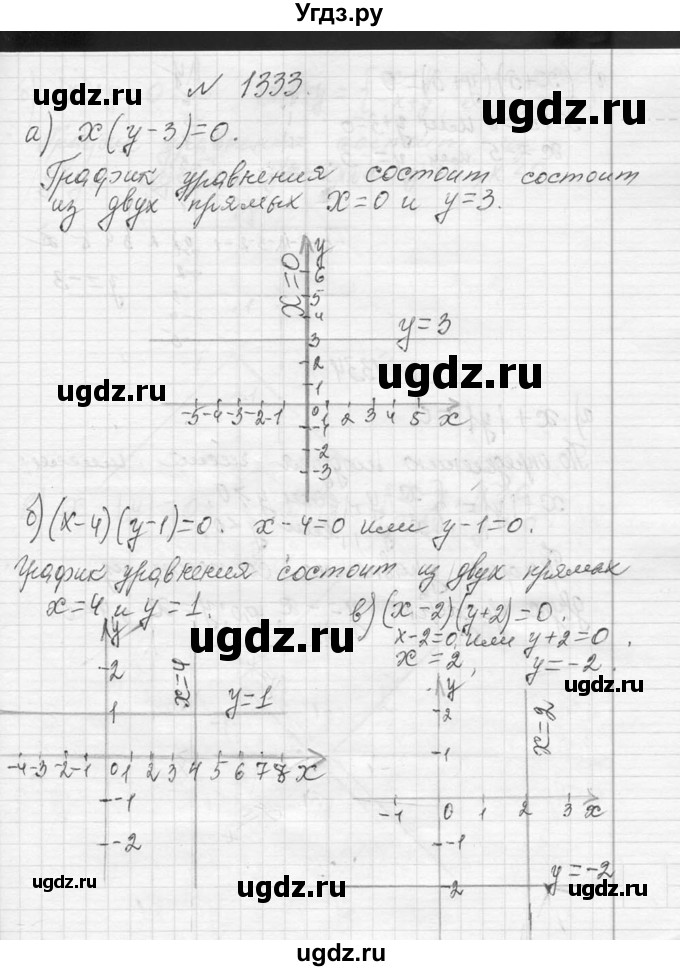 Угдз.ру
№ 1333.
ugdz.ru
ugdz.ru
а) x(y-3)=0.
График уравнения состоит состоит
из двух прямых x=0 и y=3.
x=0
y
6
5
4
y=3
3
ugdz.ru
ugdz.ru
2
1
-5 -4 -3 -2 -1 0 1 2 3 4 5 x
-1
-2
-3
б) (x-4)(y-1)=0. x-4=0 или y-1=0.
График уравнения состоит из двух прямых
x=4 и y=1.
в) (x-2)(y+2)=0.
x-2=0 или y+2=0.
x=2, y=-2.
ugdz.ru
ugdz.ru
y
2
x=4
1
y=1
-4 -3 -2 -1 0 1 2 3 4 5 6 7 8 x
-1
-2
y
2
1
x=2
-1 0 1 2 3 x
-1
y=-2
-2
ugdz.ru
ugdz.ru
ugdz.ru
ugdz.ru